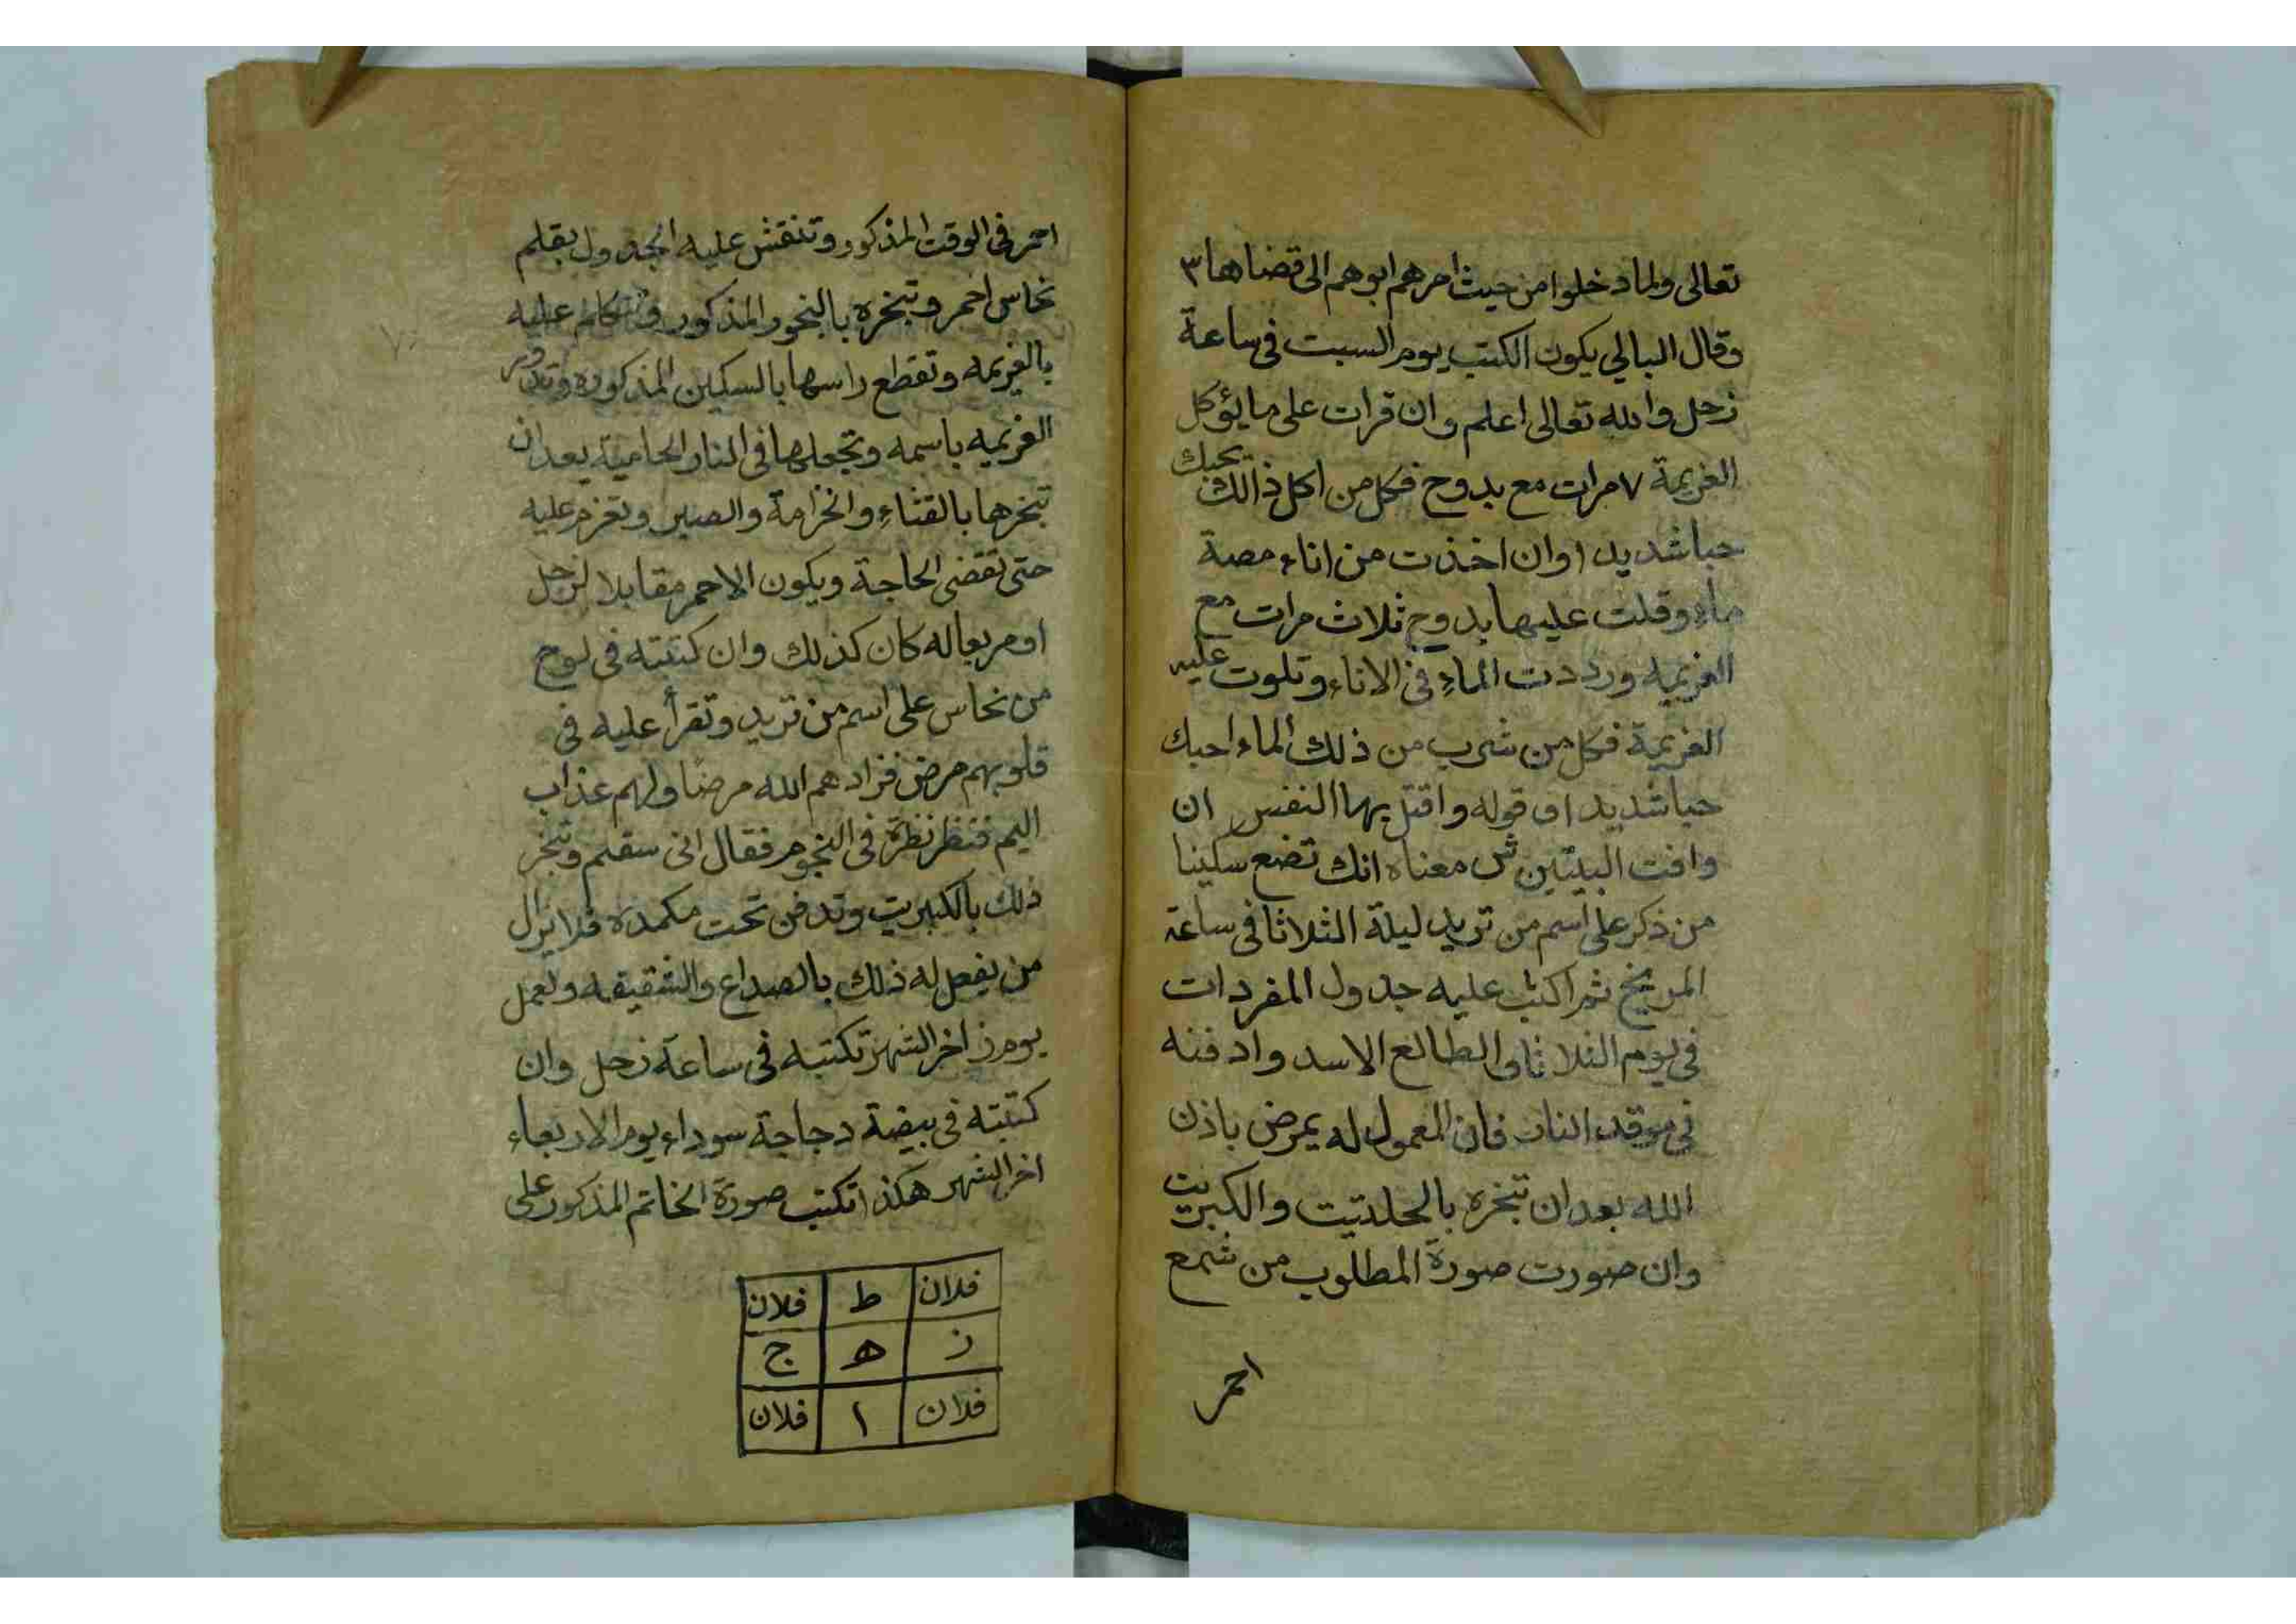 تعالى ولما دخلوا من حيث امرهم ابوهم الى قضاها ٣
وقال البالي يكون الكتب يوم السبت فى ساعة
زحل والله تعالى اعلم وان قرات على ما يؤكل
العزيمة ٧ مرات مع بدوح فكل من اكل ذالك يحبك
حبا شديدا وان اخذت من اناء مصة
ماء وقلت عليها بدوح ثلاث مرات مع
العزيمه ورددت الماء في الاناء وتلوت عليه
العزيمة فكل من شرب من ذلك الماء احبك
حبا شديدا وقوله واقتل بها النفس ان
وافت البيتين ش معناه انك تضع سكينا
من ذكر على اسم من تريد ليلة الثلاثا فى ساعة
المريخ ثم اكتب عليه جدول المفردات
فى يوم الثلاثا والطالع الاسد وادفنه
في موقد النار فان المعمول له يمرض باذن
الله بعد ان تبخره بالحلتيت والكبريت
وان صورت صورة المطلوب من شمع
احمر
احمر فى الوقت المذكور وتنقش عليه الجدول بقلم
نحاس احمر وتبخره بالبخور المذكور وتتكلم عليه
بالعزيمه وتقطع راسها بالسكين المذكوره وتدور
العزيمه باسمه وتجعلها فى النار الحامية بعد ان
تبخرها بالقثاء والخزامة والصبر وتعزم عليه
حتى تقضى الحاجة ويكون الاحمر مقابلا لزحل
او مربعا له كان كذلك وان كتبته فى لوح
من نحاس على اسم من تريد وتقرأ عليه فى
قلوبهم مرض فزادهم الله مرضًا ولهم عذاب
اليم فنظر نظرة فى النجوم فقال انى سقيم وتبخر
ذلك بالكبريت وتدفن تحت مكمدة فلا يزال
من يفعل له ذلك بالصداع والشقيقه والعمل
يوم ز اخر الشهر تكتبه فى ساعة زحل وان
كتبته فى بيضة دجاجة سوداء يوم الاربعاء
اخر الشهر هكذا تكتب صورة الخاتم المذكور على
فلان ط فلان
ز ه ج
فلان ا فلان